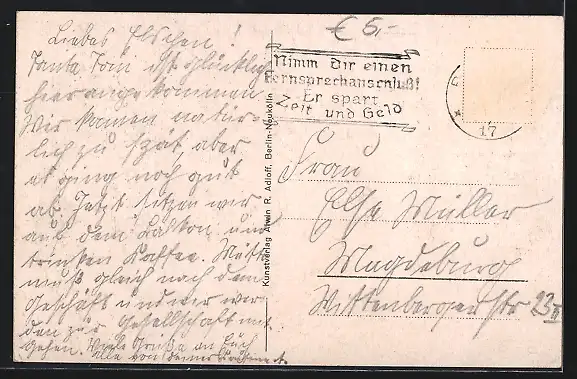 Liebes Elschen!
Tante Toni ist glücklich
hier angekommen.
Wir kamen natür-
lich zu spät, aber
es ging noch gut
ab. Jetzt sitzen wir
auf dem Balkon und
trinken Kaffee.
muß gleich nach dem
Geschäft und wir wer-
den zur Gesellschaft mit
gehen. Viele Grüße an Euch
Alle von Deiner
€ 5,-
Nimm dir einen
Fernsprechanschluß!
Er spart
Zeit und Geld
17
Kunstverlag Alwin R. Adloff, Berlin-Neukölln
Frau
Else Müller
Magdeburg
Wittenbergerstr 23